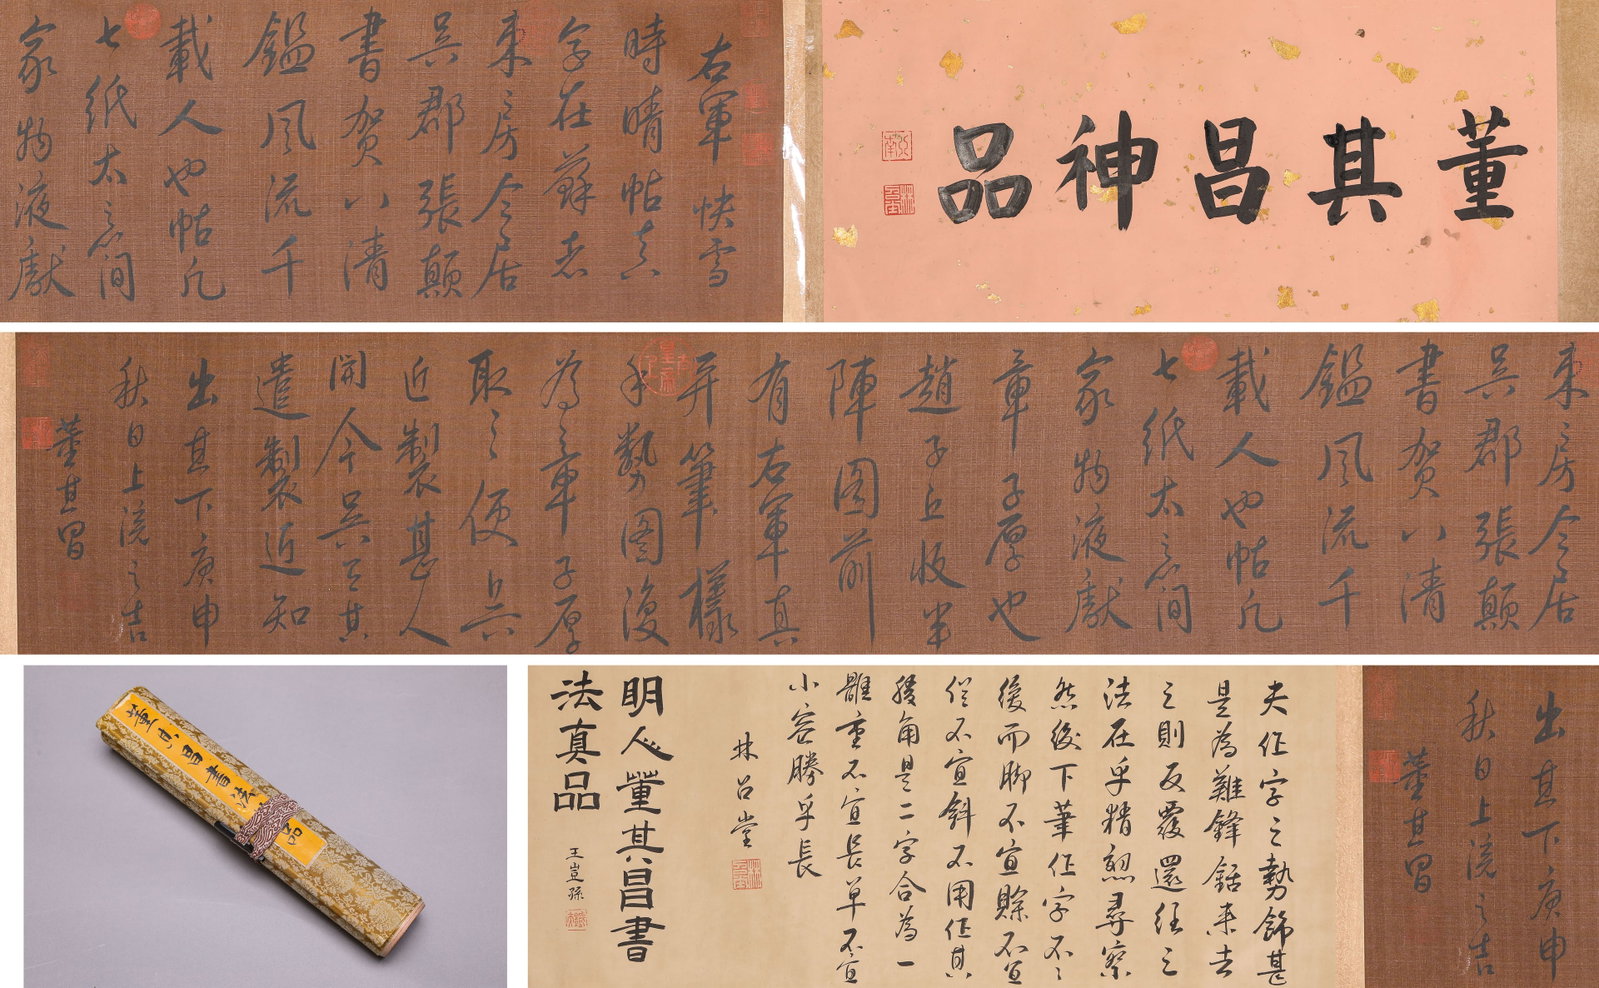 董其昌神品
右軍快雪
時晴帖真
字在蘇
房今居
吳郡張顛
書賀八清
鑑風流千
載人也帖凡
七紙太簡
家物液獻
房今居
吳郡張顛
書賀八清
鑑風流千
載人也帖凡
七紙太簡
家物液獻
章子厚也
趙子立收半
陣圖前
有右軍真
并筆樣
手勢圖後
為章子厚
取之便
近製甚人
開今吳其
遣製近知
出其下庚申
秋日上浣之吉
董其昌
出其下庚申
秋日上浣之吉
董其昌
夫作字之勢飾甚
是為難鋒銛來去
之則反覆還往之
法在乎精熟尋察
然後下筆作字不
後而腳不宜賒不宜
促不宜斜不用作其
稜角是二字合為一
體重不宜長單不宜
小容勝乎長
林召棠
明人董其昌書
法真品
王豈孫
董其昌書法 品